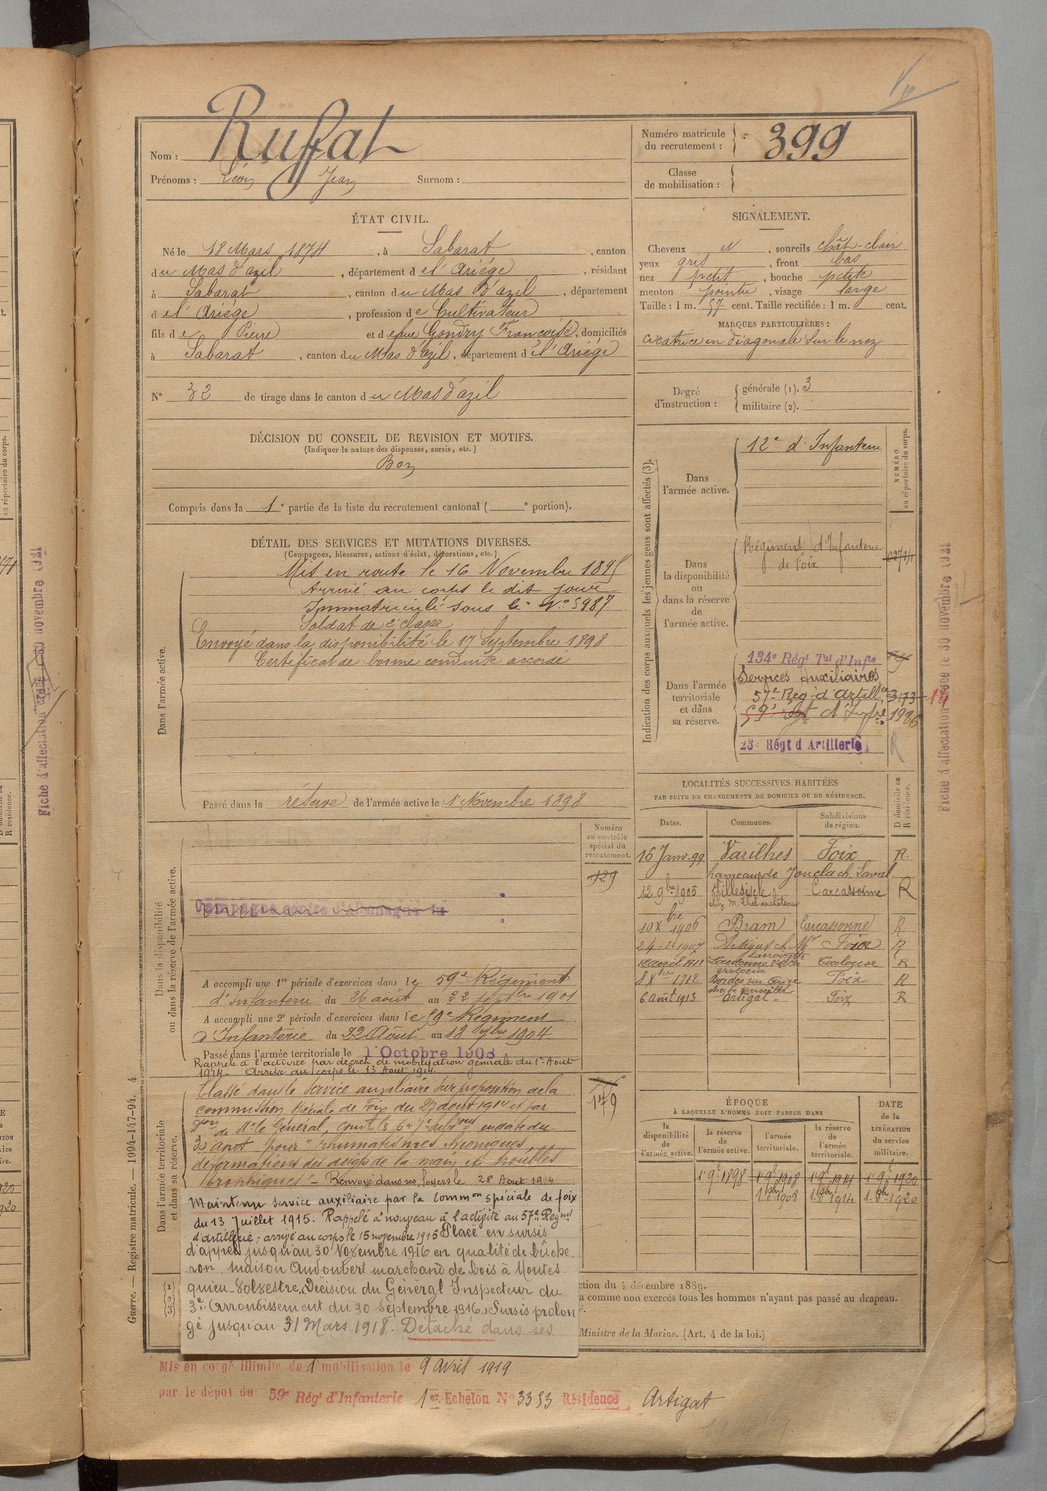 Nom : Ruffat
Prénoms : Léon Jean Surnom :
Numéro matricule du recrutement : 399
Classe de mobilisation :
ÉTAT CIVIL.
Né le 18 Mars 1874, à Sabarat, canton
du Mas d'azil, département de l'Ariége, résidant
à Sabarat, canton du Mas d'azil, département
de l'Ariége, profession de Cultivateur
fils de Pierre et de Gondry Françoise, domiciliés
à Sabarat, canton du Mas d'azil, département de l'Ariége
N° 32 de tirage dans le canton du Mas d'azil
SIGNALEMENT.
Cheveux N, sourcils chât-clair
yeux gris, front bas
nez petit, bouche petite
menton pointu, visage large
Taille : 1 m. 57 cent. Taille rectifiée : 1 m. cent.
MARQUES PARTICULIÈRES :
cicatrice en diagonale sur le nez
Degré d'instruction : générale (1). 3
militaire (2).
DÉCISION DU CONSEIL DE REVISION ET MOTIFS.
(Indiquer la nature des dispenses, sursis, etc.)
Bon
Compris dans la 1e partie de la liste du recrutement cantonal ( e portion).
DÉTAIL DES SERVICES ET MUTATIONS DIVERSES.
(Campagnes, blessures, actions d'éclat, décorations, etc.)
Dans l'armée active.
Mis en route le 16 Novembre 1895
Arrivé au corps le dit jour
Immatriculé sous le N° 5987
Soldat de 2e classe
Envoyé dans la disponibilité le 17 Septembre 1898
Certificat de bonne conduite accordé
Passé dans la réserve de l'armée active le 1 Novembre 1898
Indication des corps auxquels les jeunes gens sont affectés (3).
NUMÉRO au répertoire du corps.
Dans l'armée active.
12e d'Infanterie
Dans la disponibilité ou dans la réserve de l'armée active.
Régiment d'Infanterie
de Foix
Dans l'armée territoriale et dans sa réserve.
134e Régt Tal d'Infie
Services Auxiliaires
57e Reg. d'Artillie 3173
1926
23e Régt d'Artillerie
LOCALITÉS SUCCESSIVES HABITÉES
PAR SUITE DE CHANGEMENTS DE DOMICILE OU DE RÉSIDENCE.
Dates. Communes. Subdivisions de région. D domicile ou R résidence.
15 Janv. 99 Varilhes Foix R.
12 9bre 1905 Carcassonne R
1906 Bram Carcassonne R
1907 Foix R
Toulouse R
1912 Foix R
6 août 1913 Artigat Foix R
Numéro au contrôle spécial du recrutement.
Dans la disponibilité ou dans la réserve de l'armée active.
A accompli une 1re période d'exercices dans le 59e Régiment
d'Infanterie du 26 août au 22 septbre 1901
A accompli une 2e période d'exercices dans le 59e Régiment
d'Infanterie du 22 Août au 18 7bre 1904.
Passé dans l'armée territoriale le 1 Octobre 1908
Rappelé à l'activité par décret de mobilisation générale du 1er Août
1914. Arrivé au corps le 13 Août 1914
Dans l'armée territoriale et dans sa réserve.
Classé dans le service auxiliaire sur proposition de la
commission spéciale de Foix du 27 août 1914 et par
de Mr le Général, Comt
août pour "rhumatismes chroniques,
déformations des doigts de la main et troubles
trophiques" - Renvoyé dans ses foyers le 28 Août 1914
Maintenu service auxiliaire par la Common spéciale de foix
du 13 Juillet 1915. Rappelé à nouveau à l'activité au 57e Régment
d'artillerie ; arrivé au corps le 15 novembre 1915 Placé en sursis
d'appel jusqu'au 30 Novembre 1916 en qualité de bûche-
ron maison Audoubert marchand de bois à Montes
quieu-Volvestre, Décision du Général Inspecteur du
3e Arrondissement du 30 Septembre 1916. Sursis prolon
gé jusqu'au 31 Mars 1918. Détaché dans ses
ÉPOQUE
À LAQUELLE L'HOMME DOIT PASSER DANS
la disponibilité de l'armée active. la réserve de l'armée active. l'armée territoriale. la réserve de l'armée territoriale.
DATE de la LIBÉRATION du service militaire.
ction du 4 décembre 1889.
a comme non exercés tous les hommes n'ayant pas passé au drapeau.
Ministre de la Marine. (Art. 4 de la loi.)
Mis en congé illimité de démobilisation le 9 Avril 1919
par le dépôt du 59e Régt d'Infanterie 1er Echelon N° 3353 Résidence Artigat
Guerre. — Registre matricule. — 1994-147-94.